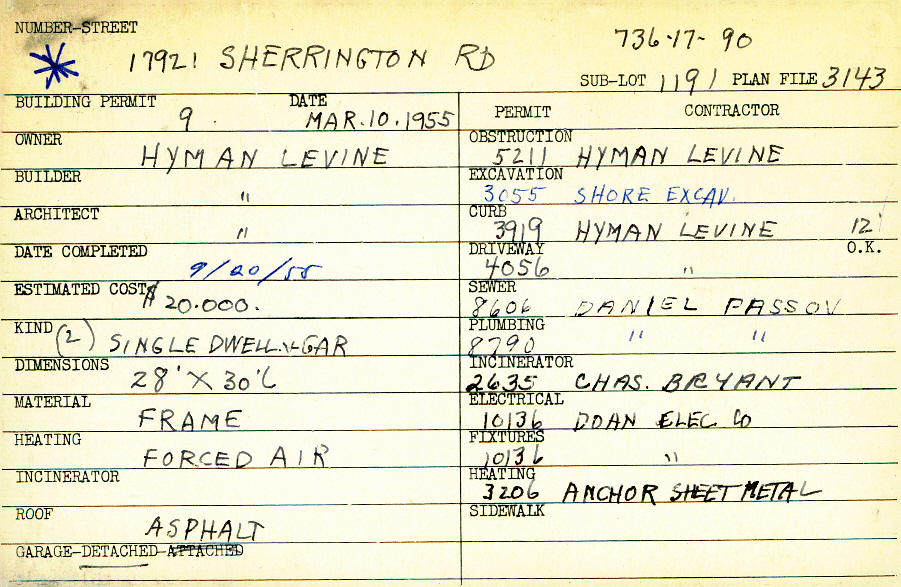 NUMBER-STREET
17921 SHERRINGTON RD
736-17-90
SUB-LOT 1191 PLAN FILE 3143
BUILDING PERMIT DATE
9. MAR.10.1955
OWNER
HYMAN LEVINE
BUILDER
"
ARCHITECT
"
DATE COMPLETED
9/20/55
ESTIMATED COST
$20.000.
KIND
(2) SINGLE DWELL. & GAR
DIMENSIONS
28' X 30'6
MATERIAL
FRAME
HEATING
FORCED AIR
INCINERATOR
ROOF
ASPHALT
GARAGE-DETACHED-ATTACHED
PERMIT CONTRACTOR
OBSTRUCTION
5211 HYMAN LEVINE
EXCAVATION
3055 SHORE EXCAV.
CURB
3919 HYMAN LEVINE 12'
DRIVEWAY O.K.
4056 "
SEWER
8606 DANIEL PASSOV
PLUMBING
8790 " "
INCINERATOR
2635 CHAS. BRYANT
ELECTRICAL
10136 DOAN ELEC. CO
FIXTURES
10136 "
HEATING
3206 ANCHOR SHEET METAL
SIDEWALK